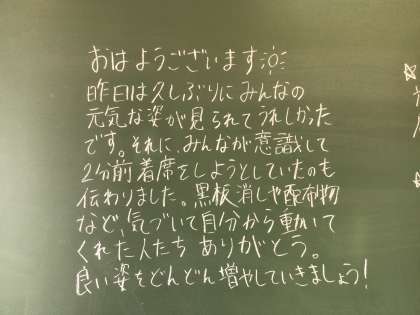 おはようございます
昨日は久しぶりにみんなの
元気な姿が見られてうれしかった
です。それに、みんなが意識して
2分前着席をしようとしていたのも
伝わりました。黒板消しや配布物
など、気づいて自分から動いて
くれた人たち ありがとう。
良い姿をどんどん増やしていきましょう!